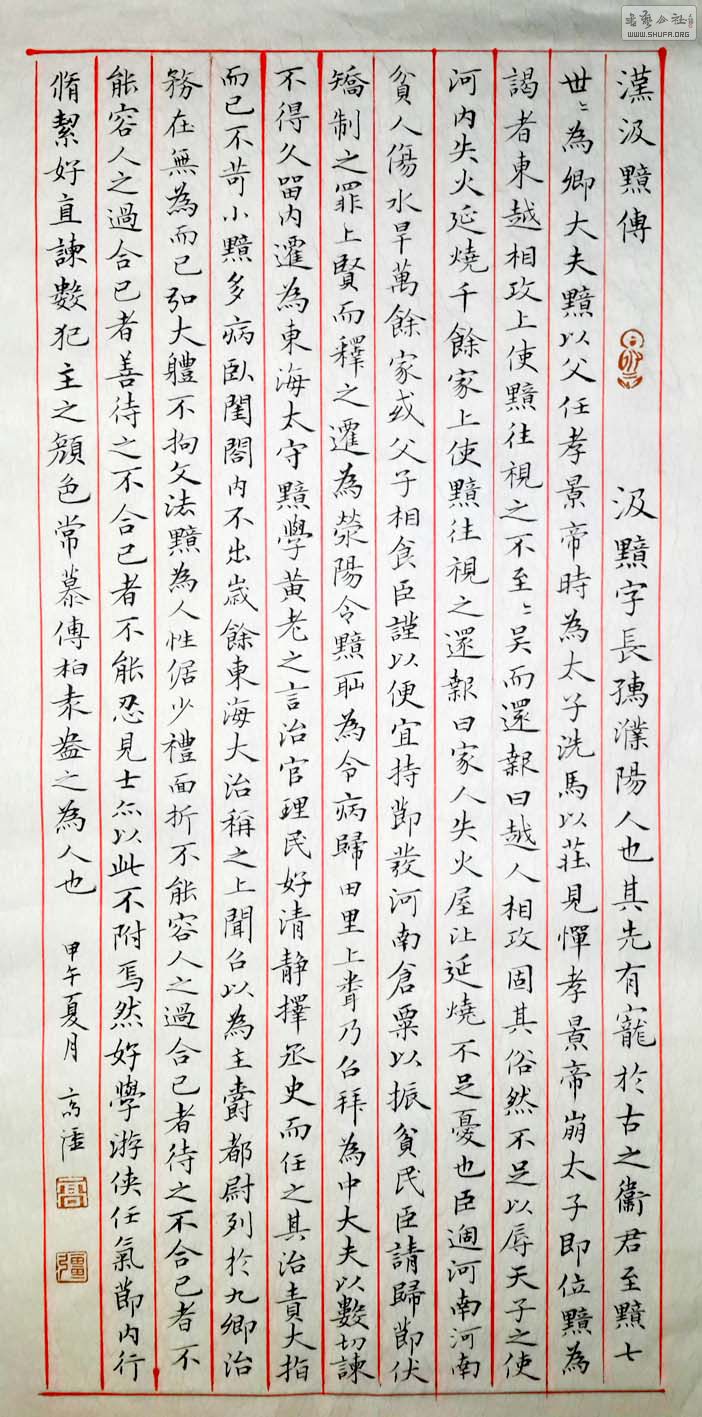 漢汲黯傳 汲黯字長孺濮陽人也其先有寵於古之衛君至黯七
世〻為卿大夫黯以父任孝景帝時為太子洗馬以莊見憚孝景帝崩太子即位黯為
謁者東越相攻上使黯往視之不至〻吳而還報曰越人相攻固其俗然不足以辱天子之使
河內失火延燒千餘家上使黯往視之還報曰家人失火屋比延燒不足憂也臣過河南河南
貧人傷水旱萬餘家或父子相食臣謹以便宜持節發河南倉粟以振貧民臣請歸節伏
矯制之罪上賢而釋之遷為滎陽令黯恥為令病歸田里上聞乃召拜為中大夫以數切諫
不得久留內遷為東海太守黯學黃老之言治官理民好清靜擇丞史而任之其治責大指
而已不苛小黯多病臥閨閤內不出歲餘東海大治稱之上聞召以為主爵都尉列於九卿治
務在無為而已弘大體不拘文法黯為人性倨少禮面折不能容人之過合己者待之不合己者不
能容人之過合己者善待之不合己者不能忍見士亦以此不附焉然好學游俠任氣節內行
脩絜好直諫數犯主之顏色常慕傅柏袁盎之為人也 甲午夏月 高
書藝公社
WWW.SHUFA.ORG